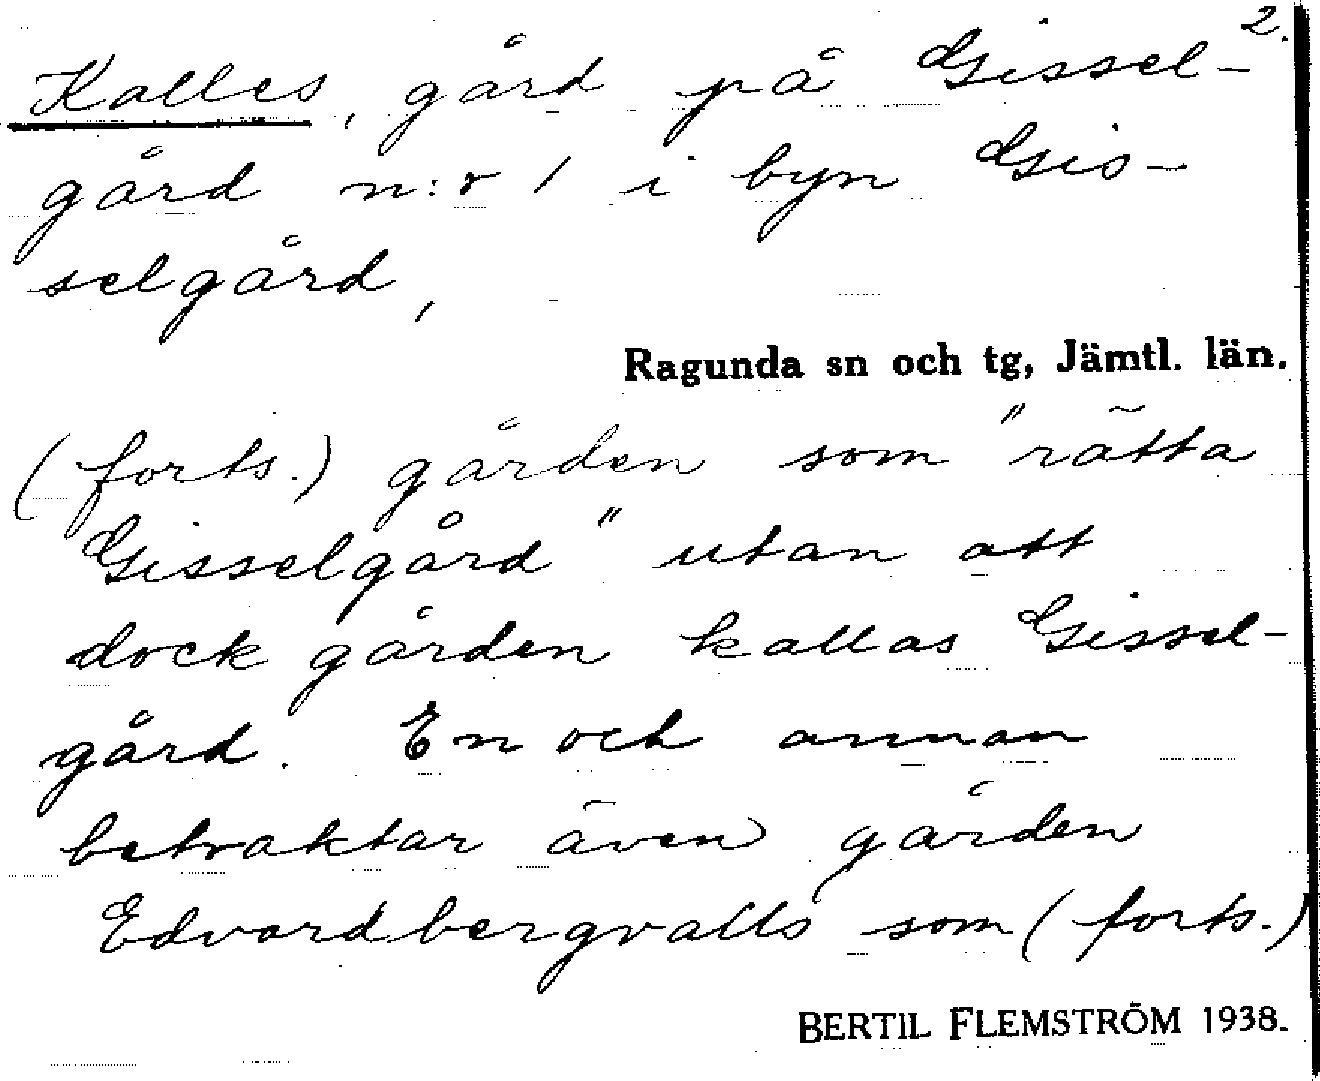 2.
Kalles, gård på Gissel-
gård n:r 1 i byn Gis-
selgård,
Ragunda sn och tg, Jämtl. län.
(forts.) gården som "rätta
Gisselgård" utan att
dock gården kallas Gissel-
gård. En och annan
betraktar även gården
Edvardbergvalls som (forts.)
BERTIL FLEMSTRÖM 1938.